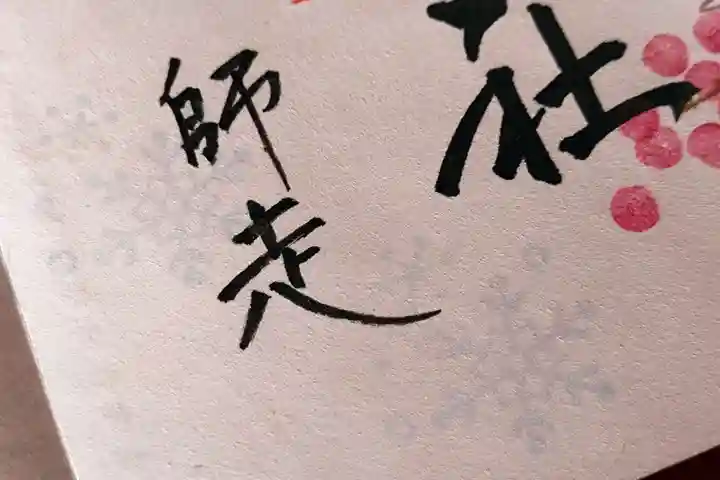 社
師走